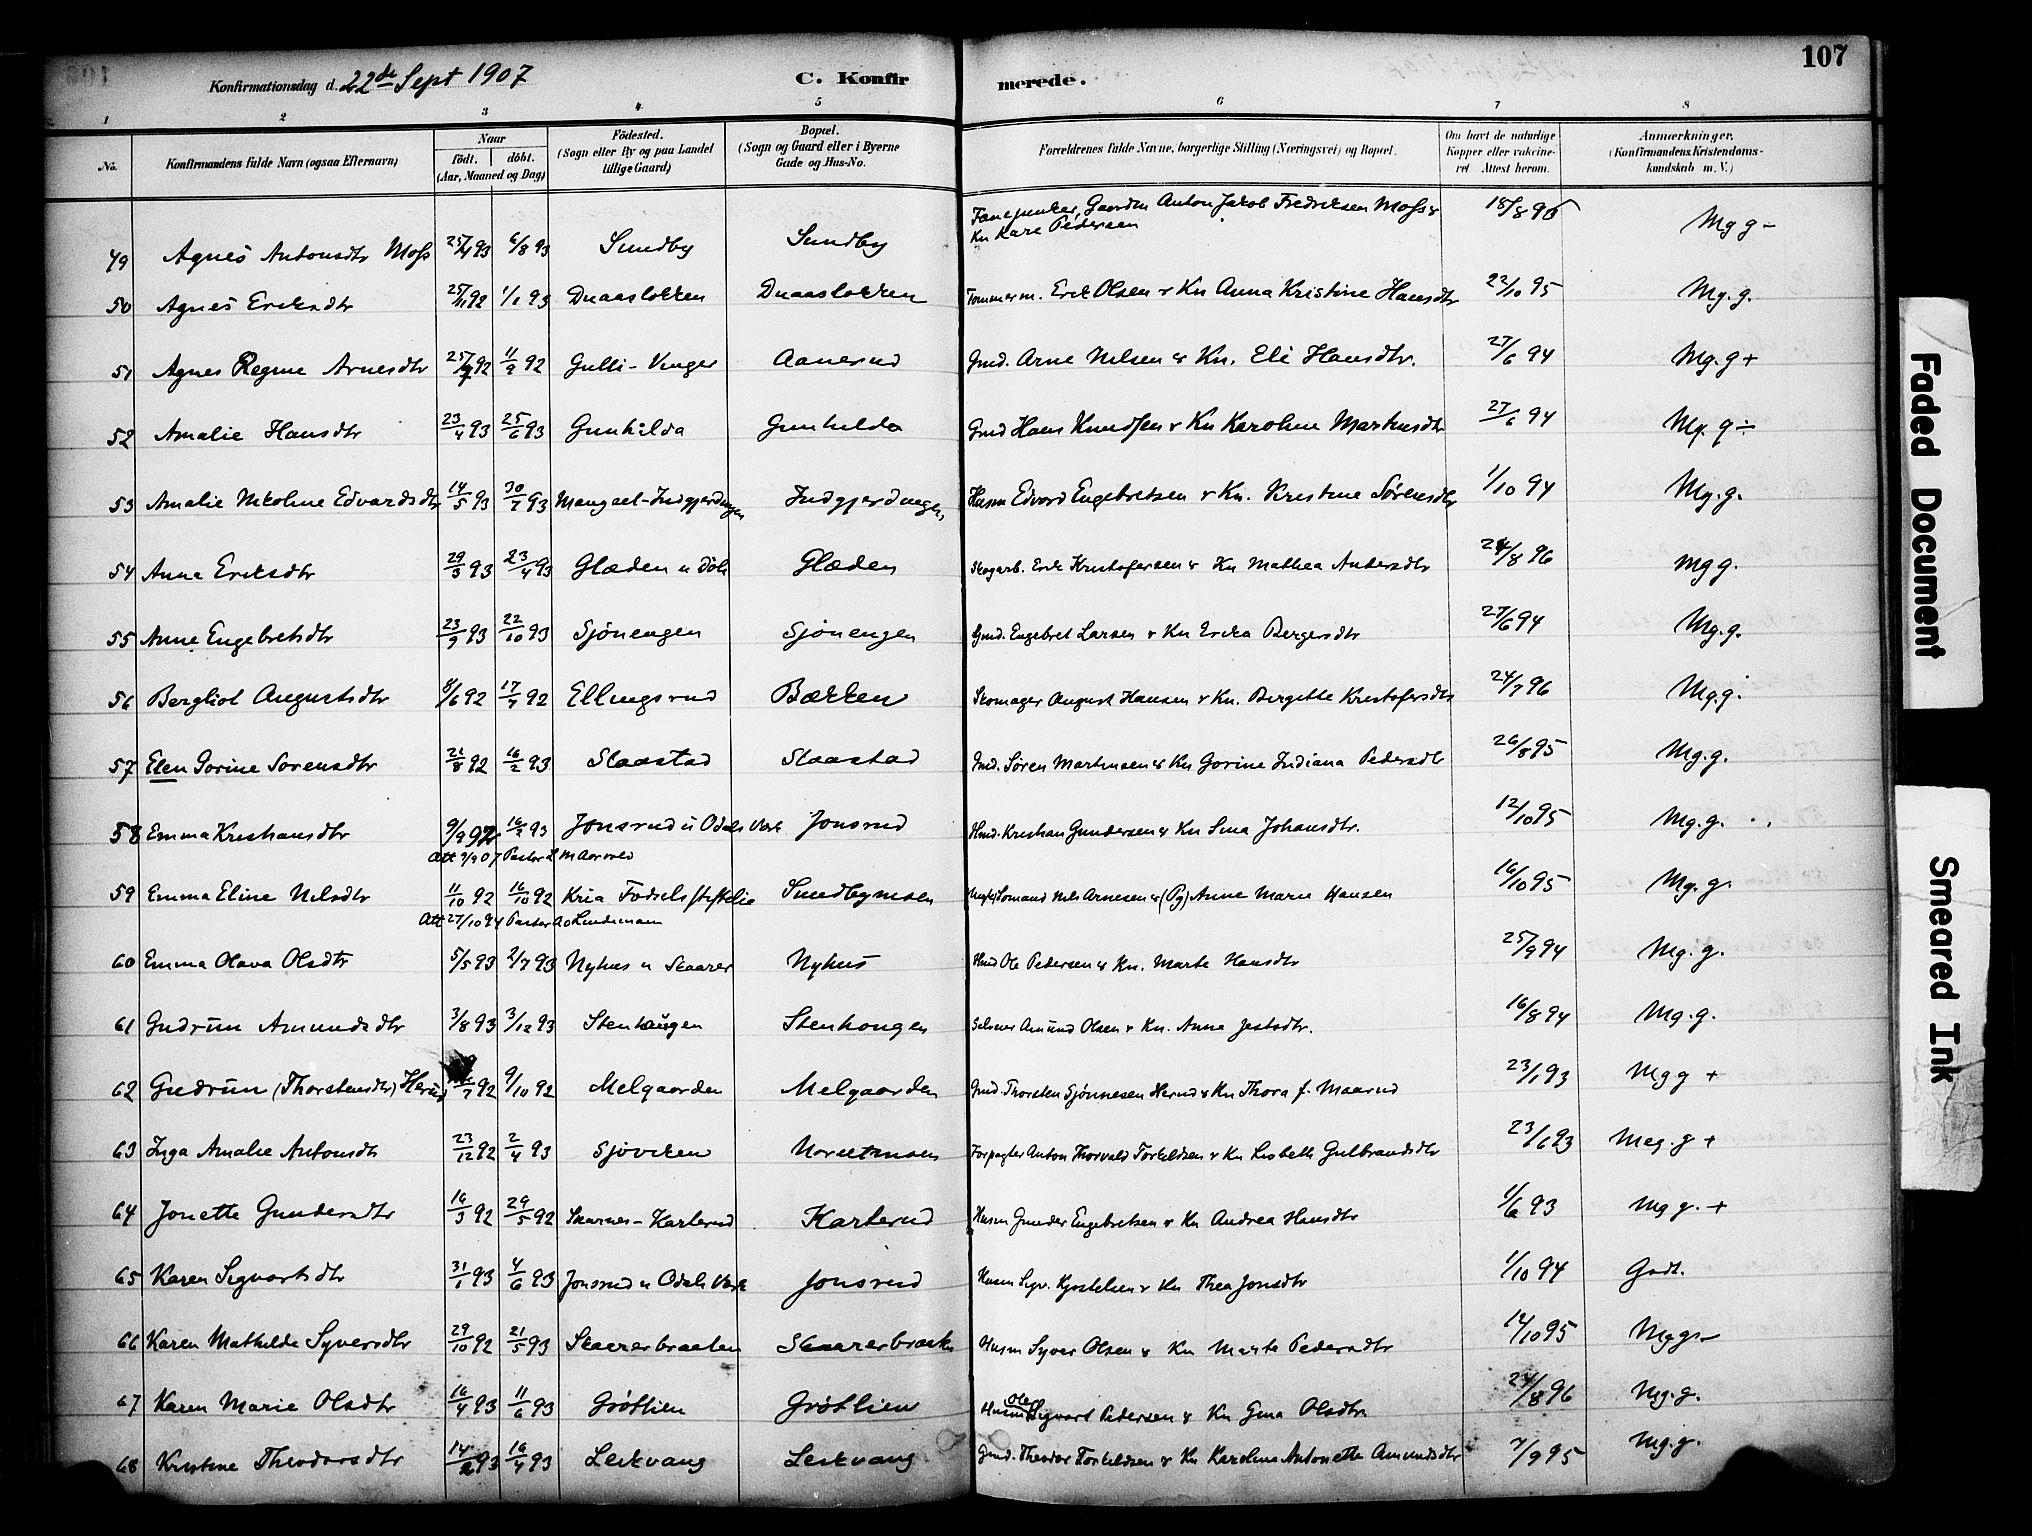 107
Konfirmationsdag d. 22de Sept 1907 C. Konfirmerede.
1 2 3 4 5 6 7 8
No. Konfirmandens fulde Navn (ogsaa Efternavn) Naar födt. döbt. (Aar, Maaned og Dag) Födested. (Sogn eller By og paa Landet tillige Gaard) Bopæl. (Sogn og Gaard eller i Byerne Gade og Hus-No. Forældrenes fulde Navne, borgerlige Stilling (Næringsvei) og Bopæl. Om havt de naturlige Kopper eller vakcineret. Attest herom. Anmærkninger. (Konfirmandens Kristendomskundskab m. V.)
49 Agnes Antonsdtr Moss 25/4 93 6/8 93 Sundby Sundby Fanejunker, Gaardm Anton Jakob Fredriksen Moss & Kn Kare Pedersen 15/8 96 Mg g -
50 Agnes Eriksdtr 25/11 92 1/1 93 Dnaaslokken Dnaaslokken Tommerm. Erik Olsen & Kn Anna Kristine Hansdtr 22/10 95 Mg. g.
51 Agnes Regine Arnesdtr 25/7 92 11/9 92 Gulli-Vinger Aanerud Gmd. Arne Nilsen & Kn. Eli Hansdtr. 27/6 94 Mg. g +
52 Amalie Hansdtr 23/4 93 25/6 93 Gunhilda Gunhilda Gmd Hans Knudsen & Kn Karoline Martinsdtr 27/6 94 Mg. g ÷
53 Amalie Nikoline Edvardsdtr 14/5 93 30/7 93 Mangset-Indgjerdingen Indgjerdingen Husm Edvard Engebretsen & Kn. Kristine Sörensdtr 1/10 94 Mg. g.
54 Anne Eriksdtr 29/3 93 23/4 93 Glæden u Döli Glæden Skogarb. Erik Kristofersen & Kn Mathea Andersdtr 24/8 96 Mg g.
55 Anne Engebretsdtr 23/9 93 22/10 93 Sjönengen Sjönengen Gmd. Engebret Larsen & Kn Erika Bergersdtr 27/6 94 Mg. g.
56 Bergliot Augustsdtr 8/6 92 17/7 92 Ellingsrud Bækken Skomager August Hansen & Kn. Bergitte Kristofersdtr 24/7 96 Mg. g.
57 Elen Gorine Sorensdtr 21/8 92 16/2 93 Slaastad Slaastad Gmd. Sören Martinsen & Kn Gorine Indiana Pedersdtr 26/8 95 Mg. g.
58 Emma Kristiansdtr 9/9 92 16/2 93 Jonsrud u Odals Verk Jonsrud Hmd. Kristian Gundersen & Kn Sina Johansdtr. 12/10 95 Mg. g.
Att 9/9 07 Pastor
59 Emma Eline Nilsdtr 11/10 92 16/10 92 Kria Fodselsstiftelse Sundbymoen Nils Arnesen & (Pg) Anne Marie Hansen 16/10 95 Mg. g.
Att 27/10 94 Pastor Lindemann
60 Emma Olava Olsdtr 5/5 93 2/7 93 Nyhus u Skaarer Nyhus Hmd Ole Pedersen & Kn. Marte Hansdtr 25/9 94 Mg. g.
61 Gudrun Amundsdtr 3/8 93 3/12 93 Stenhaugen Stenhougen Selveier Amund Olsen & Kn. Anne 16/8 94 Mg. g.
62 Gudrun (Thorstensdtr) Herud /7 92 9/10 92 Melgaarden Melgaarden Gmd. Thorsten Sjönnesen Herud & Kn Thora f. Maarud 23/1 93 Mg g +
63 Inga Amalie Antonsdtr 23/12 92 2/4 93 Sjövoken Forpagter Anton Thorvald Torkildsen & Kn Lisbeth Gulbrandsdtr 23/6 93 Meg. g +
64 Jonette Gundersdtr 16/3 92 29/5 92 Skarnes-Karterud Karterud Husm Gunder Engebretsen & Kn Andrea Hansdtr 1/6 93 Mg g. +
65 Karen Sigvartsdtr 31/1 93 4/6 93 Jonsrud u Odals Verk Jonsrud Husm Sigv. Kjostelsen & Kn Thea Jonsdtr 1/10 94 Godt.
66 Karen Mathilde Syversdtr 29/10 92 21/5 93 Skaarerbraaten Skaarerbraaten Husm Syver Olsen & Kn Marte Pedersdtr 14/10 95 Mg g -
67 Karen Marie Olsdtr 16/4 93 11/6 93 Grötlien Grötlien Husm Olaf Sigvart Pedersen & Kn Gina Olsdtr. 24/8 96 Mg. g.
68 Kristine Theodorsdtr 14/2 93 16/4 93 Leikvang Leikvang Gmd. Theodor Torkildsen & Kn Karoline Antonette Amundsdtr 7/9 95 Mg. g.
Faded Document
Smeared Ink